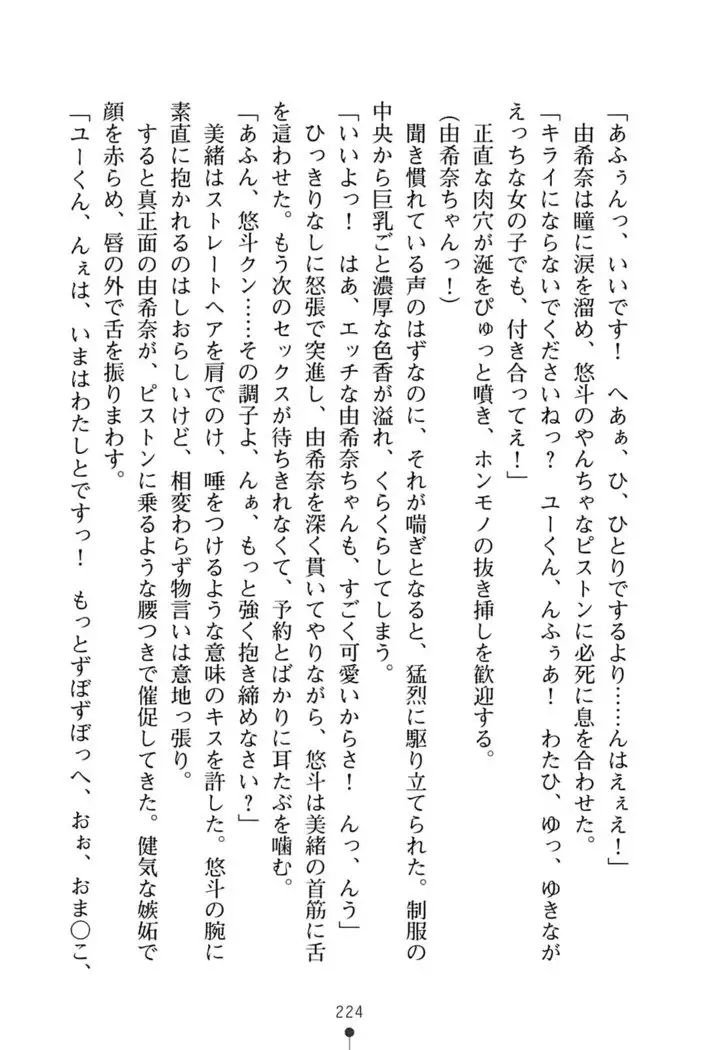 「あふぅんっ、いいです！　へあぁ、ひ、ひとりでするより……んはえぇえ！」
由希奈は瞳に涙を溜め、悠斗のやんちゃなピストンに必死に息を合わせた。
「キライにならないでくださいねっ？　ユーくん、んふぅあ！　わたひ、ゆっ、ゆきなが
えっちな女の子でも、付き合ってえ！」
正直な肉穴が涎をぴゅっと噴き、ホンモノの抜き挿しを歓迎する。
(由希奈ちゃんっ！)
聞き慣れている声のはずなのに、それが喘ぎとなると、猛烈に駆り立てられた。制服の
中央から巨乳ごと濃厚な色香が溢れ、くらくらしてしまう。
「いいよっ！　はあ、エッチな由希奈ちゃんも、すごく可愛いからさ！　んっ、んう」
ひっきりなしに怒張で突進し、由希奈を深く貫いてやりながら、悠斗は美緒の首筋に舌
を這わせた。もう次のセックスが待ちきれなくて、予約とばかりに耳たぶを噛む。
「あふん、悠斗クン……その調子よ、んぁ、もっと強く抱き締めなさい？」
美緒はストレートヘアを肩でのけ、唾をつけるような意味のキスを許した。悠斗の腕に
素直に抱かれるのはしおらしいけど、相変わらず物言いは意地っ張り。
すると真正面の由希奈が、ピストンに乗るような腰つきで催促してきた。健気な嫉妬で
顔を赤らめ、唇の外で舌を振りまわす。
「ユーくん、んぇは、いまはわたしとですっ！　もっとずぼずぼっへ、おぉ、おま〇こ、
224